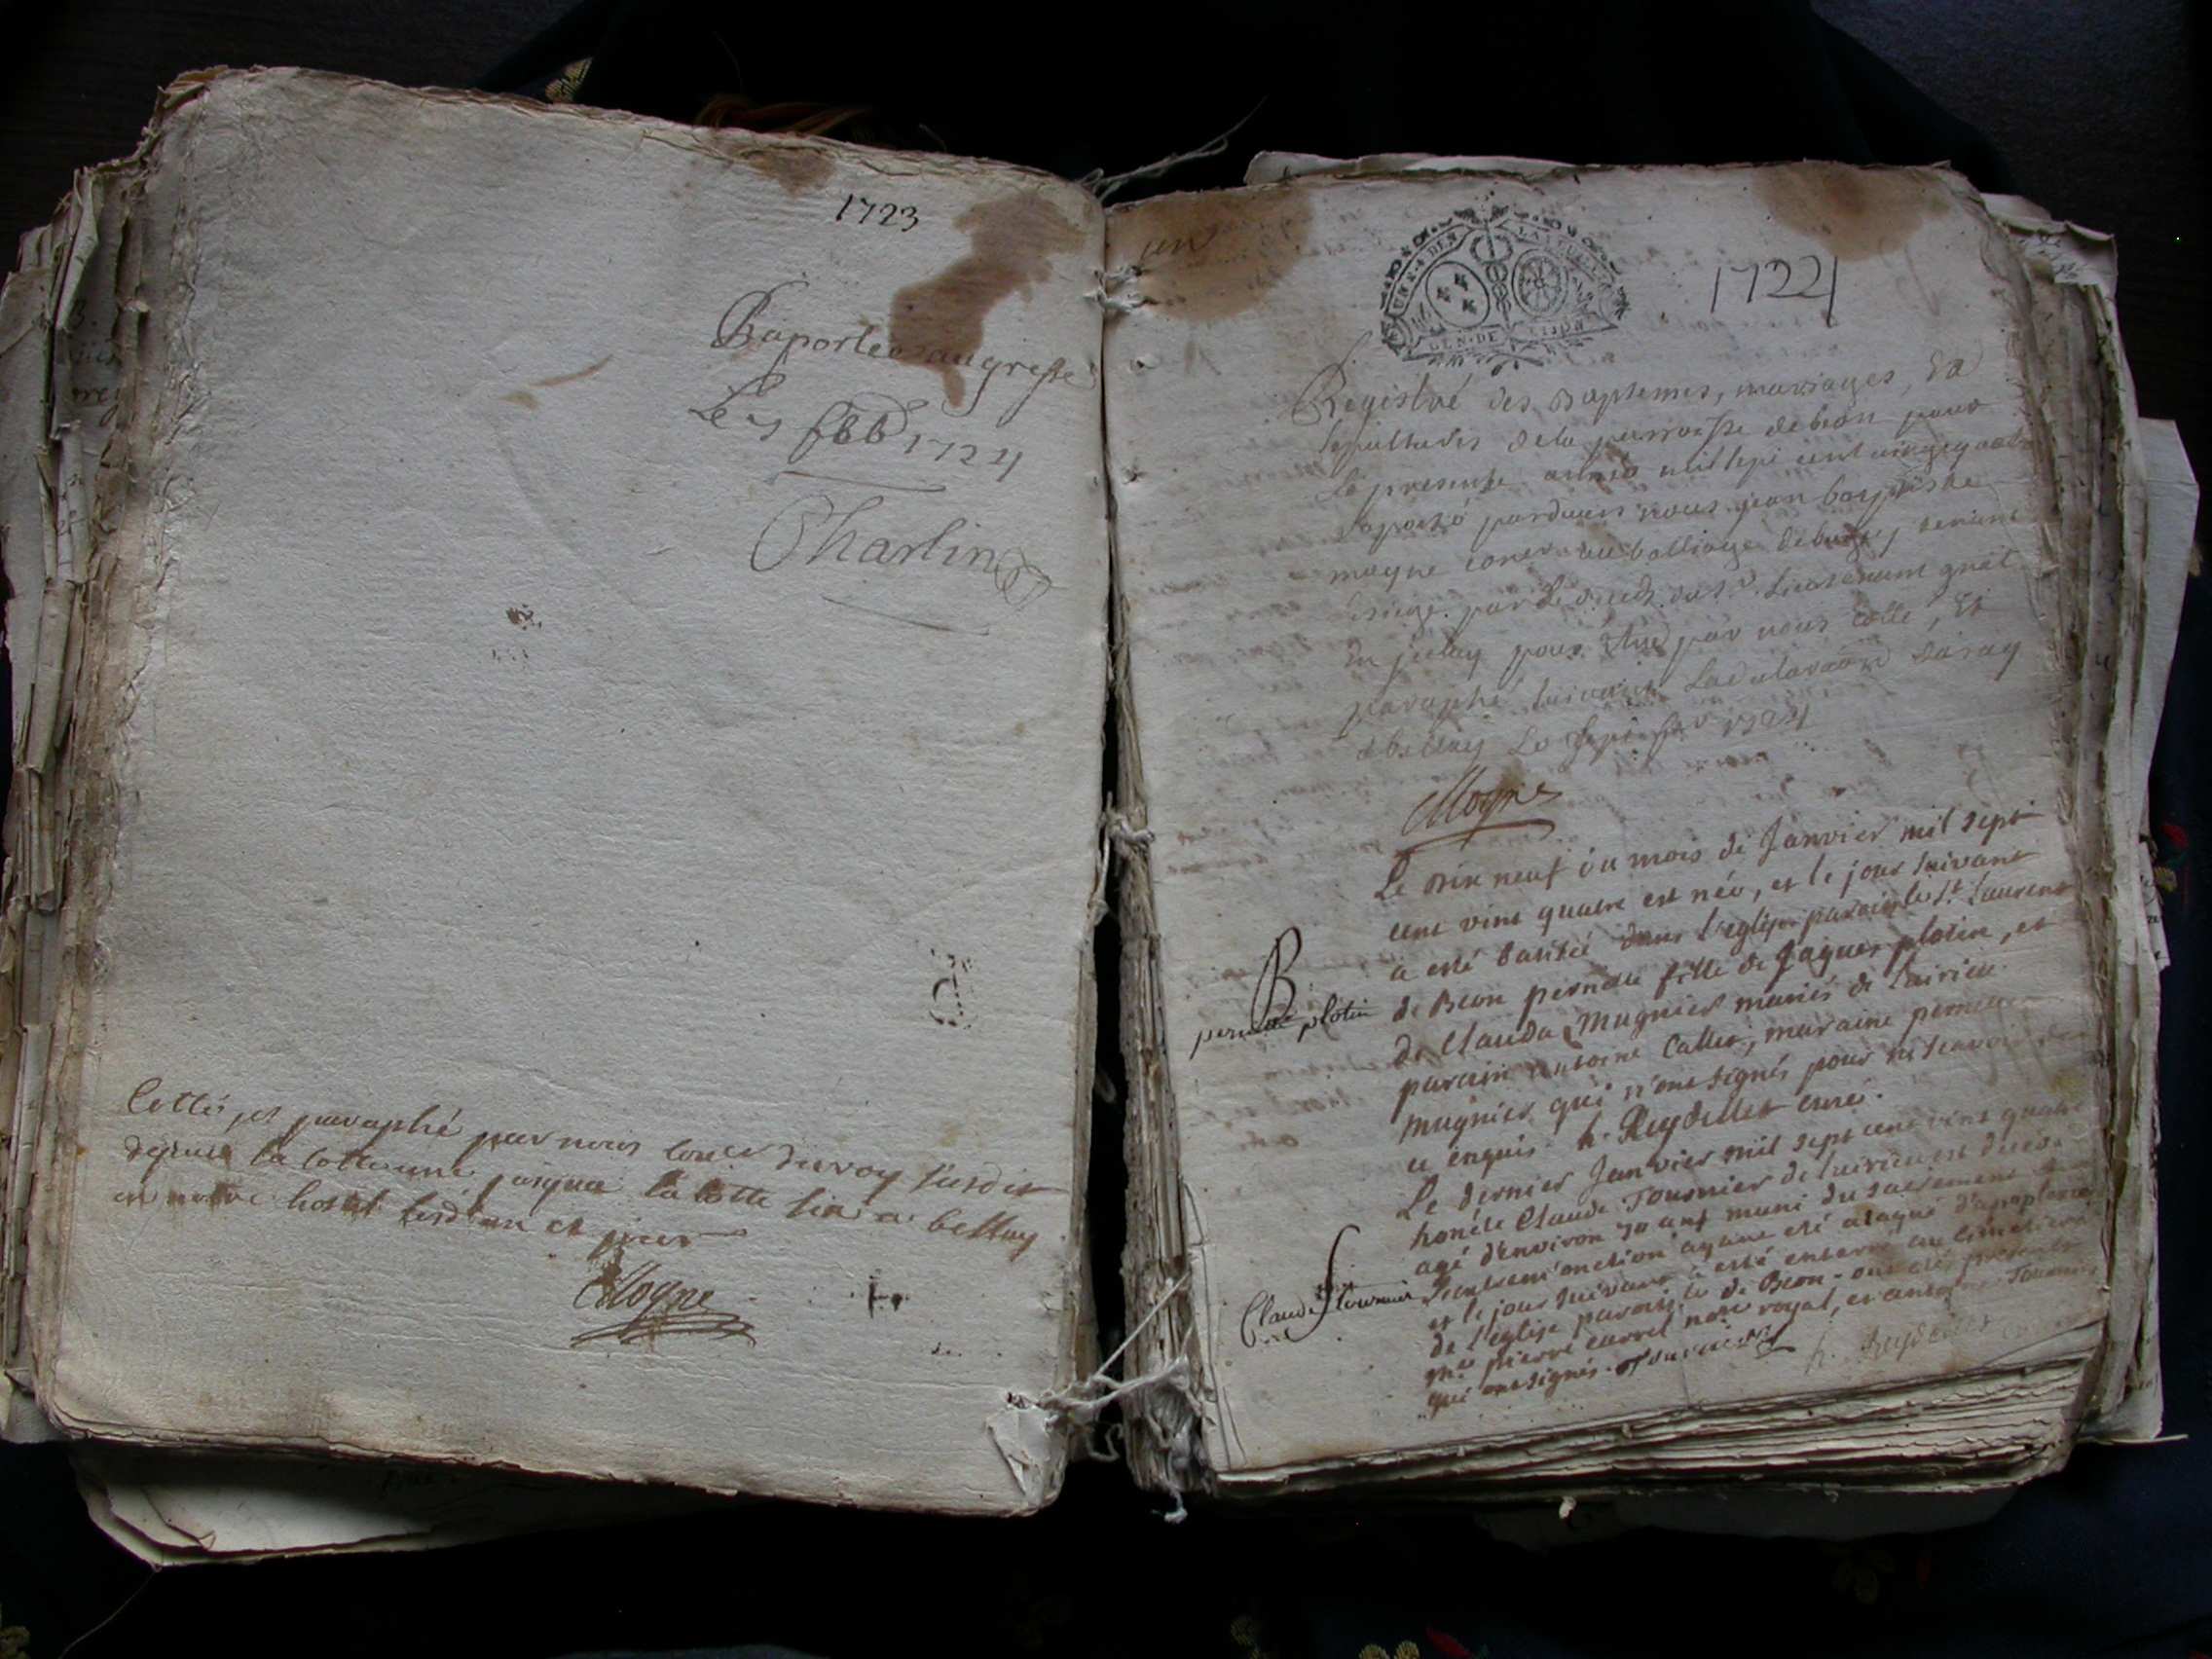 1723
Raporté au greffe
Le 7 febr 1724
Charlin
Cottés et paraphé par nous coner du roy susdit
depuis la cotte une jusqua la cotte six a belley
en notre hostel lesd an et jour
Mogne
un
GEN · DE LION
1724
Registre des Baptemes, mariages, Et
sepultures de la parroisse de beon pour
la presente année mil sept cent vingt quatre
aporté pardevers nous jean baptiste
mogne coner au balliage de bugey
siege par Lieutenant gnal
En pour Etre par nous cotté, Et
paraphé suivant La declaration du roy
a belley Le 1724
Mogne
Le dix neuf du mois de Janvier mil sept
cent vint quatre est née, et le jour suivant
a esté batisée dans l'eglise paroissle St Laurent
de Beon pernette fille de Jaques plotin, et
de Clauda Mugnier mariés de Luirieu
parain antoine Callet, maraine pernette
mugnier qui n'ont signés pour ne scavoir de
ce enquis. h. Reydellet curé.
B
pernette plotin
Le dernier Janvier mil sept cent vint quatre
honête Claude Fournier de Luirieu est decedé
agé d'environ 70 ans muni du sacrement de
l'entrem'onction ayant eté ataqué d'apoplexie
et le jour suivant a esté enterré au cimetiere
de l'eglise paroissle de Beon - ont etés presents
Me pierre carrel nore royal, et antoine Fournier
qui ont signés. h. Reydellet
S
Claude fournier